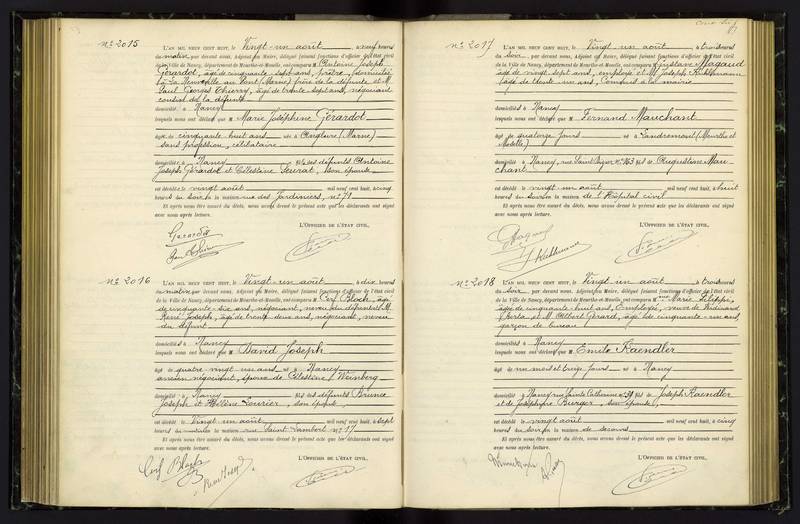 Nº 2015
L'AN MIL NEUF CENT HUIT, le Vingt-un août, à neuf heures
du matin, par devant nous, Adjoint au Maire, délégué faisant fonctions d'officier de l'état civil
de la Ville de Nancy, département de Meurthe-et-Moselle, ont comparu M. Antoine Joseph
Gérardot, âgé de cinquante-sept ans, prêtre, domicilié
à La Neuveville au Pont (Marne) frère de la défunte et M.
Paul Georges Thierry, âgé de trente-sept ans, négociant
cousin de la défunte
domicilié à Nancy
lesquels nous ont déclaré que M. Marie Joséphine Gérardot
âgée de cinquante huit ans née à Anglure (Marne)
sans profession, célibataire
domiciliée à Nancy fille des défunts Antoine
Joseph Gérardot et Célestine Seurat, son épouse
est décédée le vingt août mil neuf cent huit, à cinq
heures du soir en la maison rue des Jardiniers, nº 71
Et après nous être assuré du décès, nous avons dressé le présent acte que les déclarants ont signé
avec nous après lecture.
L'OFFICIER DE L'ÉTAT CIVIL,
Gérardot
Nº 2016
L'AN MIL NEUF CENT HUIT, le Vingt-un août, à dix heures
du matin, par devant nous, Adjoint au Maire, délégué faisant fonctions d'officier de l'état civil
de la Ville de Nancy, département de Meurthe-et-Moselle, ont comparu M. Cerf Bloch, âgé
de cinquante-six ans, négociant, neveu du défunt et M.
René Joseph, âgé de trente deux ans, négociant, neveu
du défunt
domiciliés à Nancy
lesquels nous ont déclaré que M. David Joseph
âgé de quatre-vingt un ans né à Nancy
ancien négociant, époux de Célestine Weinberg
domicilié à Nancy fils des défunts
Joseph et Hélène Lourier, son épouse
est décédé le Vingt-un août mil neuf cent huit, à sept
heures du matin en la maison rue Saint Lambert nº 17
Et après nous être assuré du décès, nous avons dressé le présent acte que les déclarants ont signé
avec nous après lecture.
L'OFFICIER DE L'ÉTAT CIVIL,
Cerf Bloch
René Joseph
Nº 2017
L'AN MIL NEUF CENT HUIT, le Vingt-un août, à trois heures
du soir, par devant nous, Adjoint au Maire, délégué faisant fonctions d'officier de l'état civil
de la Ville de Nancy, département de Meurthe-et-Moselle, ont comparu M. Gustave
âgé de vingt sept ans, employé et M. Joseph
âgé de trente-un ans, Commis à la mairie
domiciliés à Nancy
lesquels nous ont déclaré que M. Fernand Mauchant
âgé de quatorze jours né à Landremont (Meurthe et
Moselle)
domicilié à Nancy, rue fils de Augustine Mau-
chant
est décédé le vingt-un août mil neuf cent huit, à huit
heures du en la maison de l'Hôpital civil
Et après nous être assuré du décès, nous avons dressé le présent acte que les déclarants ont signé
avec nous après lecture.
L'OFFICIER DE L'ÉTAT CIVIL,
Nº 2018
L'AN MIL NEUF CENT HUIT, le Vingt-un août, à trois heures
du soir, par devant nous, Adjoint au Maire, délégué faisant fonctions d'officier de l'état civil
de la Ville de Nancy, département de Meurthe-et-Moselle, ont comparu Mme Marie
âgée de cinquante-huit ans, Employée, veuve de Ferdinand
et M. Albert Gérard, âgé de cinquante-un ans,
garçon de bureau
domiciliés à Nancy
lesquels nous ont déclaré que M. Emile Kaendler
âgé de un mois et treize jours né à Nancy
domicilié à Nancy rue Sainte Catherine nº fils de Joseph Kaendler
et de Joséphine Burger, son épouse
est décédé le vingt août mil neuf cent huit, à cinq
heures du soir en la maison de secours
Et après nous être assuré du décès, nous avons dressé le présent acte que les déclarants ont signé
avec nous après lecture.
L'OFFICIER DE L'ÉTAT CIVIL,